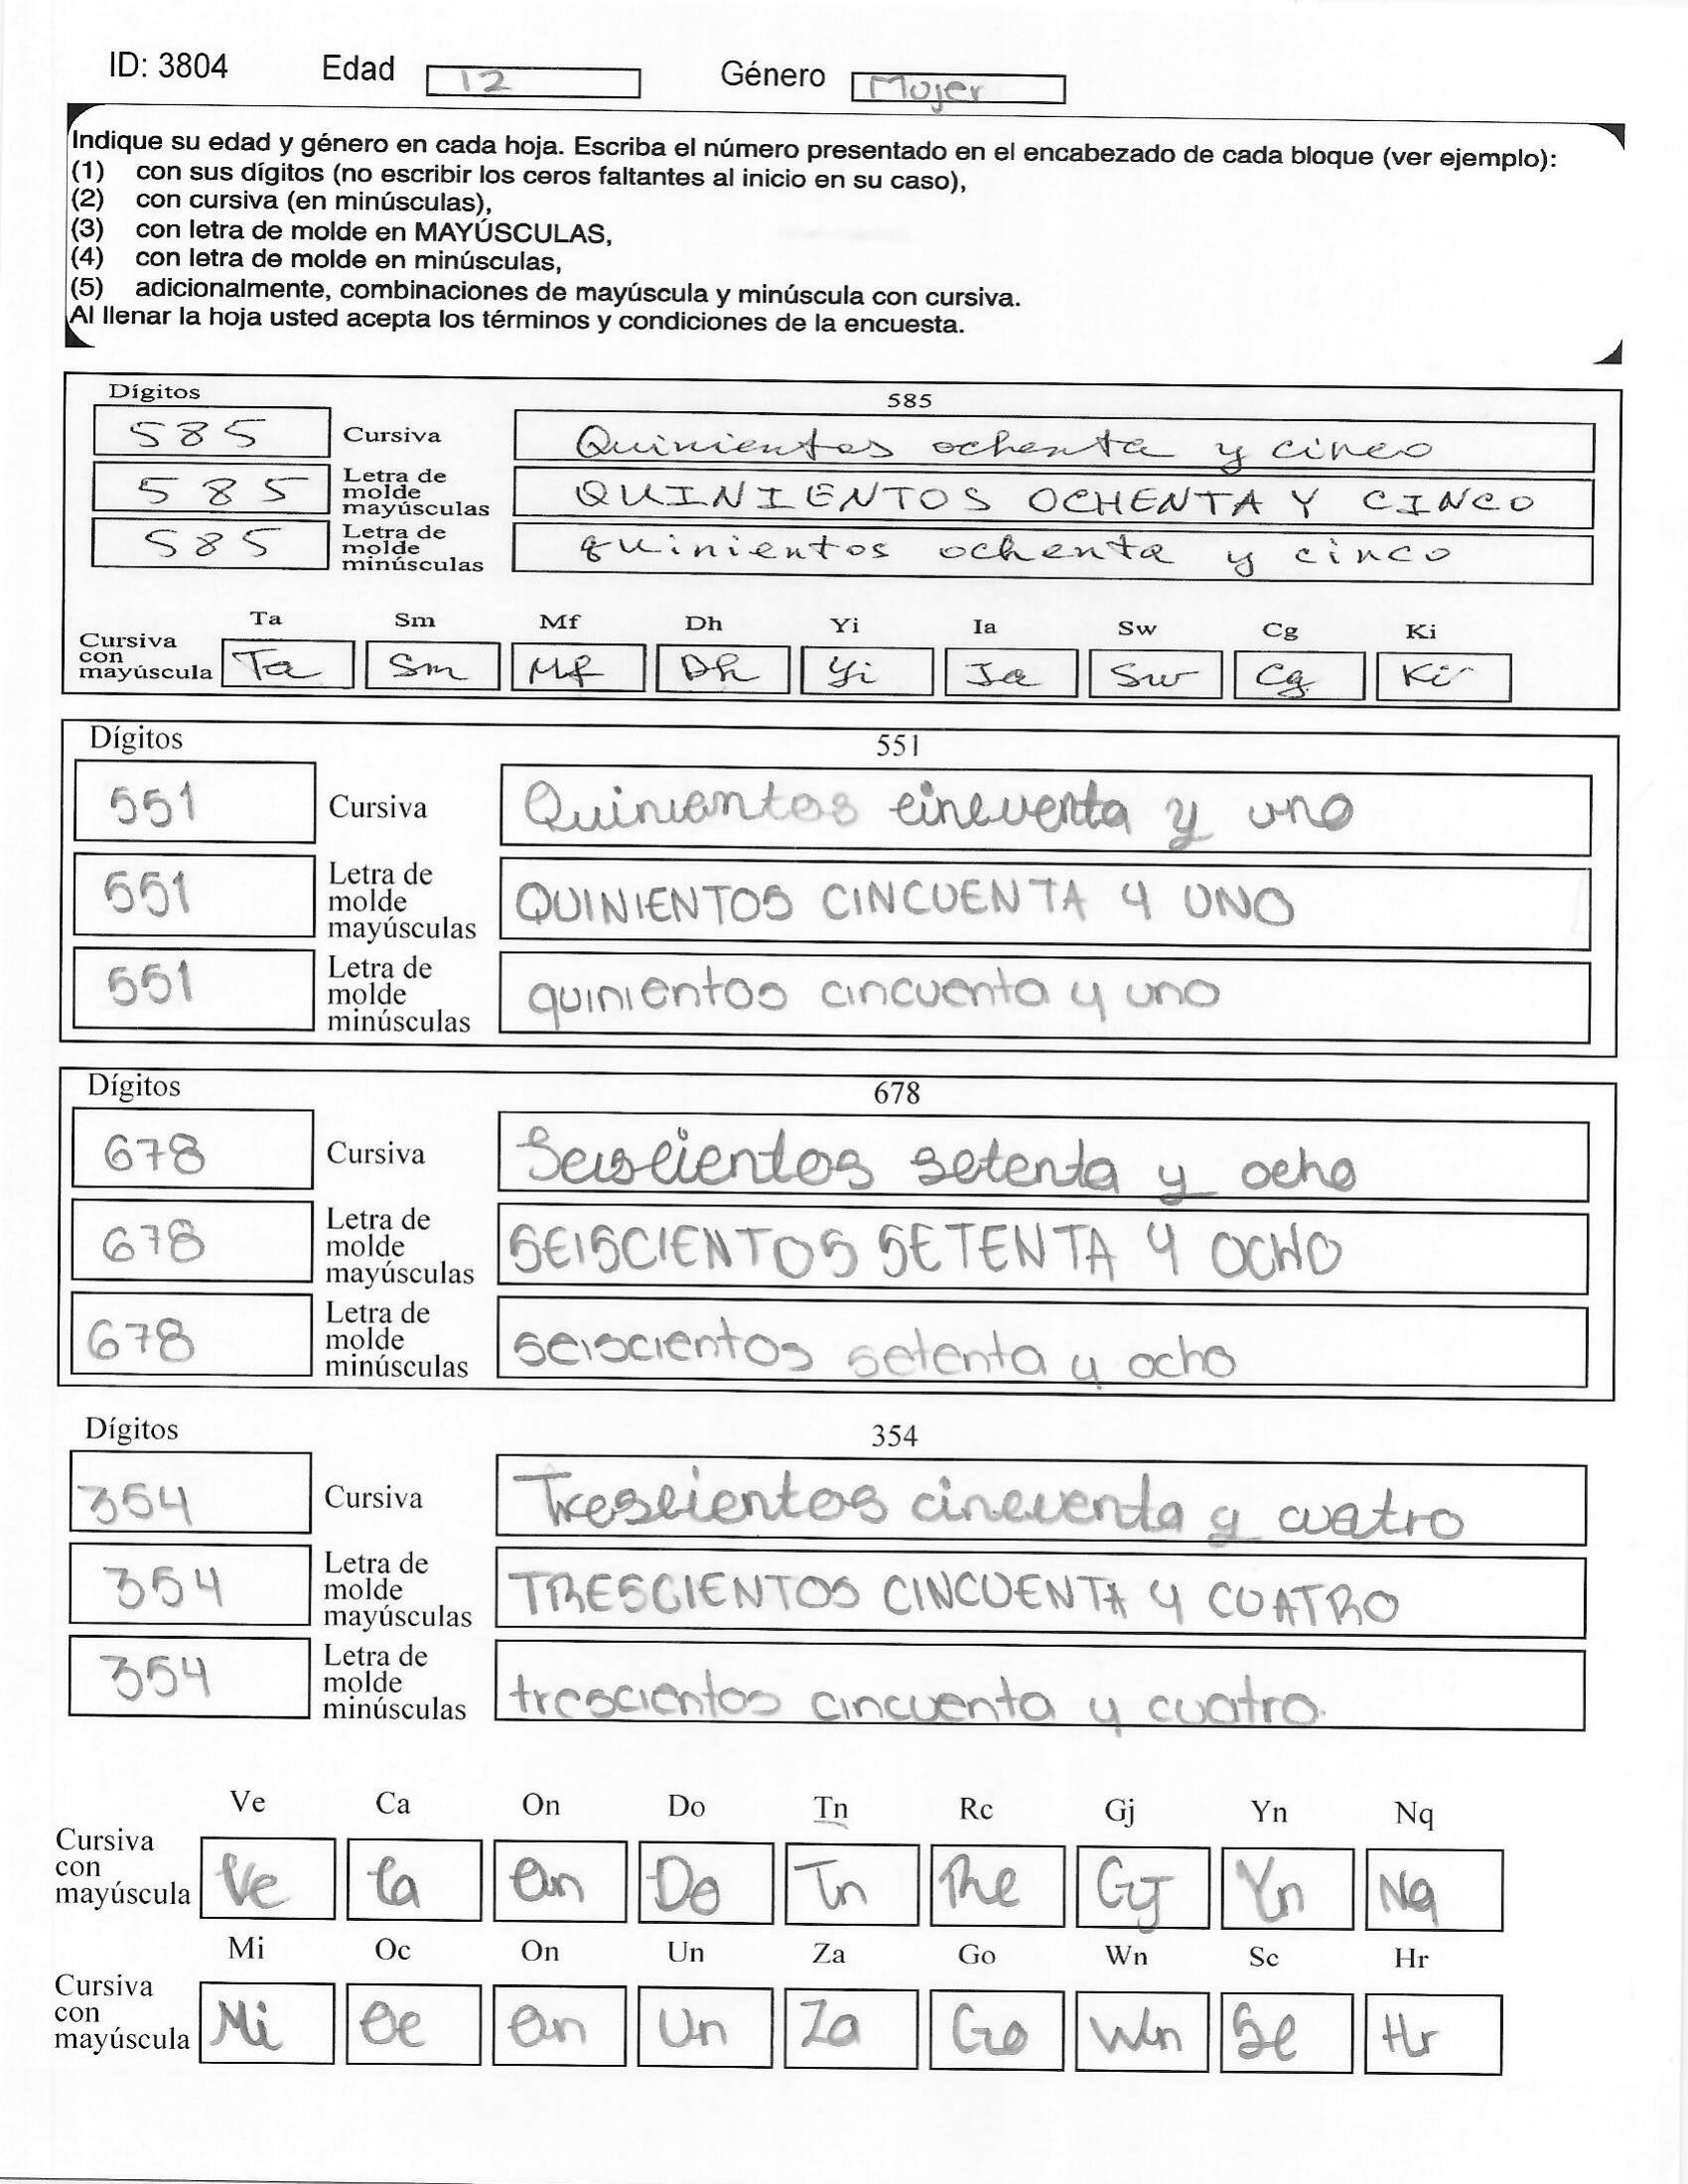 ID: 3804 Edad 12 Género Mujer
Indique su edad y género en cada hoja. Escriba el número presentado en el encabezado de cada bloque (ver ejemplo):
(1) con sus dígitos (no escribir los ceros faltantes al inicio en su caso),
(2) con cursiva (en minúsculas),
(3) con letra de molde en MAYÚSCULAS,
(4) con letra de molde en minúsculas,
(5) adicionalmente, combinaciones de mayúscula y minúscula con cursiva.
Al llenar la hoja usted acepta los términos y condiciones de la encuesta.
Dígitos 585
585 Cursiva Quinientos ochenta y cinco
585 Letra de molde mayúsculas QUINIENTOS OCHENTA Y CINCO
585 Letra de molde minúsculas quinientos ochenta y cinco
Ta Sm Mf Dh Yi Ia Sw Cg Ki
Cursiva con mayúscula Ta Sm Mf Dh Yi Ia Sw Cg Ki
Dígitos 551
551 Cursiva Quinientos cincuenta y uno
551 Letra de molde mayúsculas QUINIENTOS CINCUENTA Y UNO
551 Letra de molde minúsculas quinientos cincuenta y uno
Dígitos 678
678 Cursiva Seiscientos setenta y ocho
678 Letra de molde mayúsculas SEISCIENTOS SETENTA Y OCHO
678 Letra de molde minúsculas seiscientos setenta y ocho
Dígitos 354
354 Cursiva Trescientos cincuenta y cuatro
354 Letra de molde mayúsculas TRESCIENTOS CINCUENTA Y CUATRO
354 Letra de molde minúsculas trescientos cincuenta y cuatro.
Ve Ca On Do Tn Rc Gj Yn Nq
Cursiva con mayúscula Ve Ca On Do Tn Rc Gj Yn Nq
Mi Oc On Un Za Go Wn Sc Hr
Cursiva con mayúscula Mi Oc On Un Za Go Wn Sc Hr